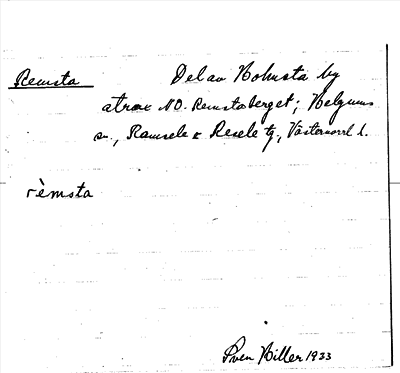 Remsta Del av Bölmsta by
strax NO. Remstaberget; Helgums
sn., Ramsele & Resele tg, Västernorrl. l.
rèmsta
Sven Hiller 1933